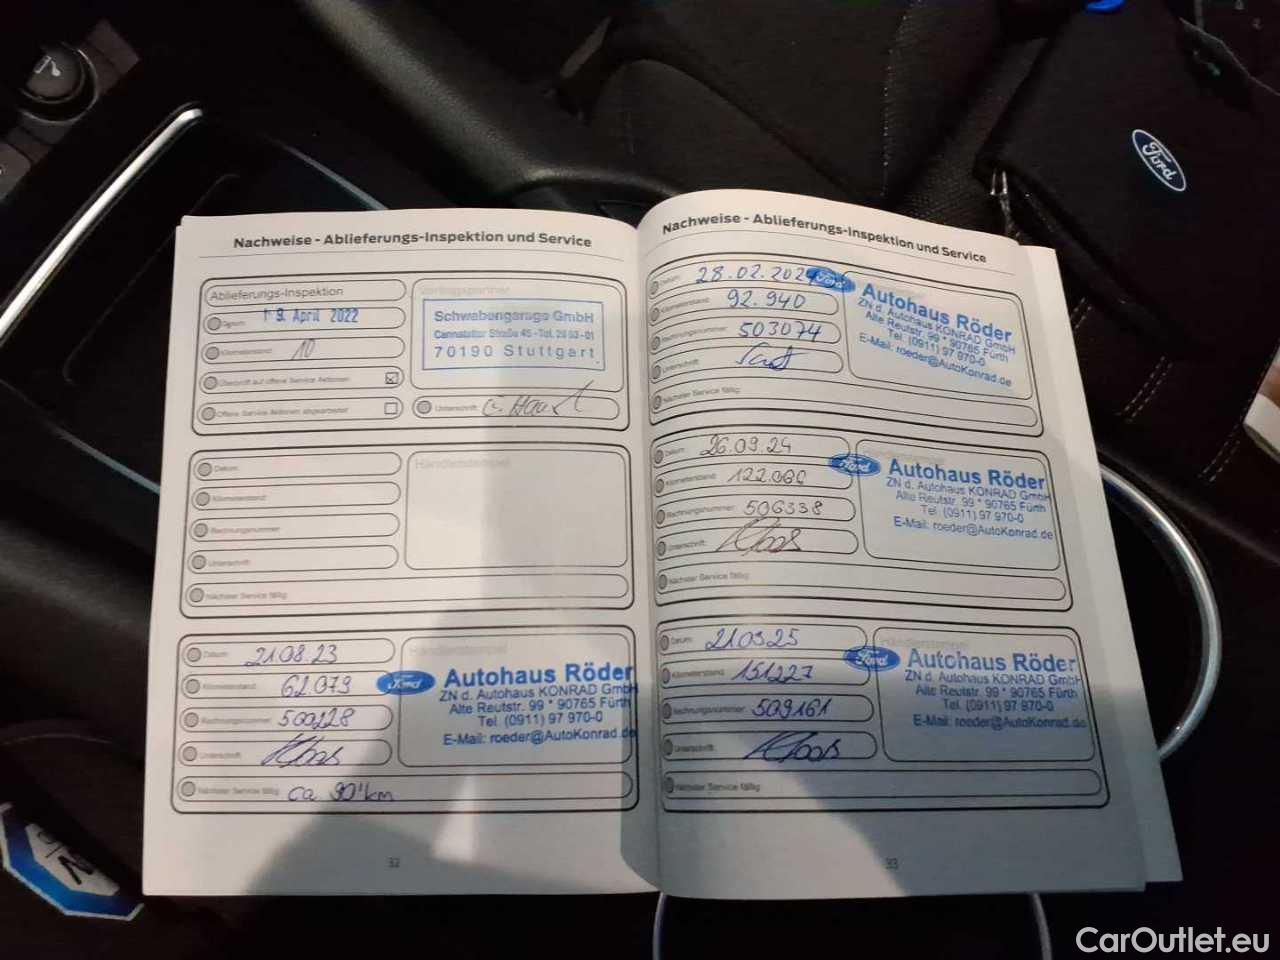 Nachweise - Ablieferungs-Inspektion und Service
Ablieferungs-Inspektion
Datum:
19. April 2022
Kilometerstand:
10
Überprüft auf offene Service Aktionen
Offene Service Aktionen abgearbeitet
Vertragspartner
Schwabengarage GmbH
Cannstatter Straße 45 - Tel. 28 03 - 01
70190 Stuttgart
Unterschrift:
Datum:
Kilometerstand:
Rechnungsnummer:
Unterschrift:
Nächster Service fällig:
Händlerstempel
Datum: 21.08.23
Kilometerstand: 62.079
Rechnungsnummer: 500228
Unterschrift:
Nächster Service fällig: ca 90'km
Händlerstempel
Ford
Autohaus Röder
ZN d. Autohaus KONRAD GmbH
Alte Reutstr. 99 * 90765 Fürth
Tel. (0911) 97 970-0
E-Mail: roeder@AutoKonrad.de
32
Nachweise - Ablieferungs-Inspektion und Service
Datum: 28.02.2024
Kilometerstand: 92.940
Rechnungsnummer: 503074
Unterschrift:
Nächster Service fällig:
Ford
Autohaus Röder
ZN d. Autohaus KONRAD GmbH
Alte Reutstr. 99 * 90765 Fürth
Tel. (0911) 97 970-0
E-Mail: roeder@AutoKonrad.de
Datum: 26.09.24
Kilometerstand: 122.066
Rechnungsnummer: 506338
Unterschrift:
Nächster Service fällig:
Händlerstempel
Ford
Autohaus Röder
ZN d. Autohaus KONRAD GmbH
Alte Reutstr. 99 * 90765 Fürth
Tel. (0911) 97 970-0
E-Mail: roeder@AutoKonrad.de
Datum: 21.03.25
Kilometerstand: 151227
Rechnungsnummer: 509161
Unterschrift:
Nächster Service fällig:
Händlerstempel
Ford
Autohaus Röder
ZN d. Autohaus KONRAD GmbH
Alte Reutstr. 99 * 90765 Fürth
Tel. (0911) 97 970-0
E-Mail: roeder@AutoKonrad.de
33
Ford
CarOutlet.eu